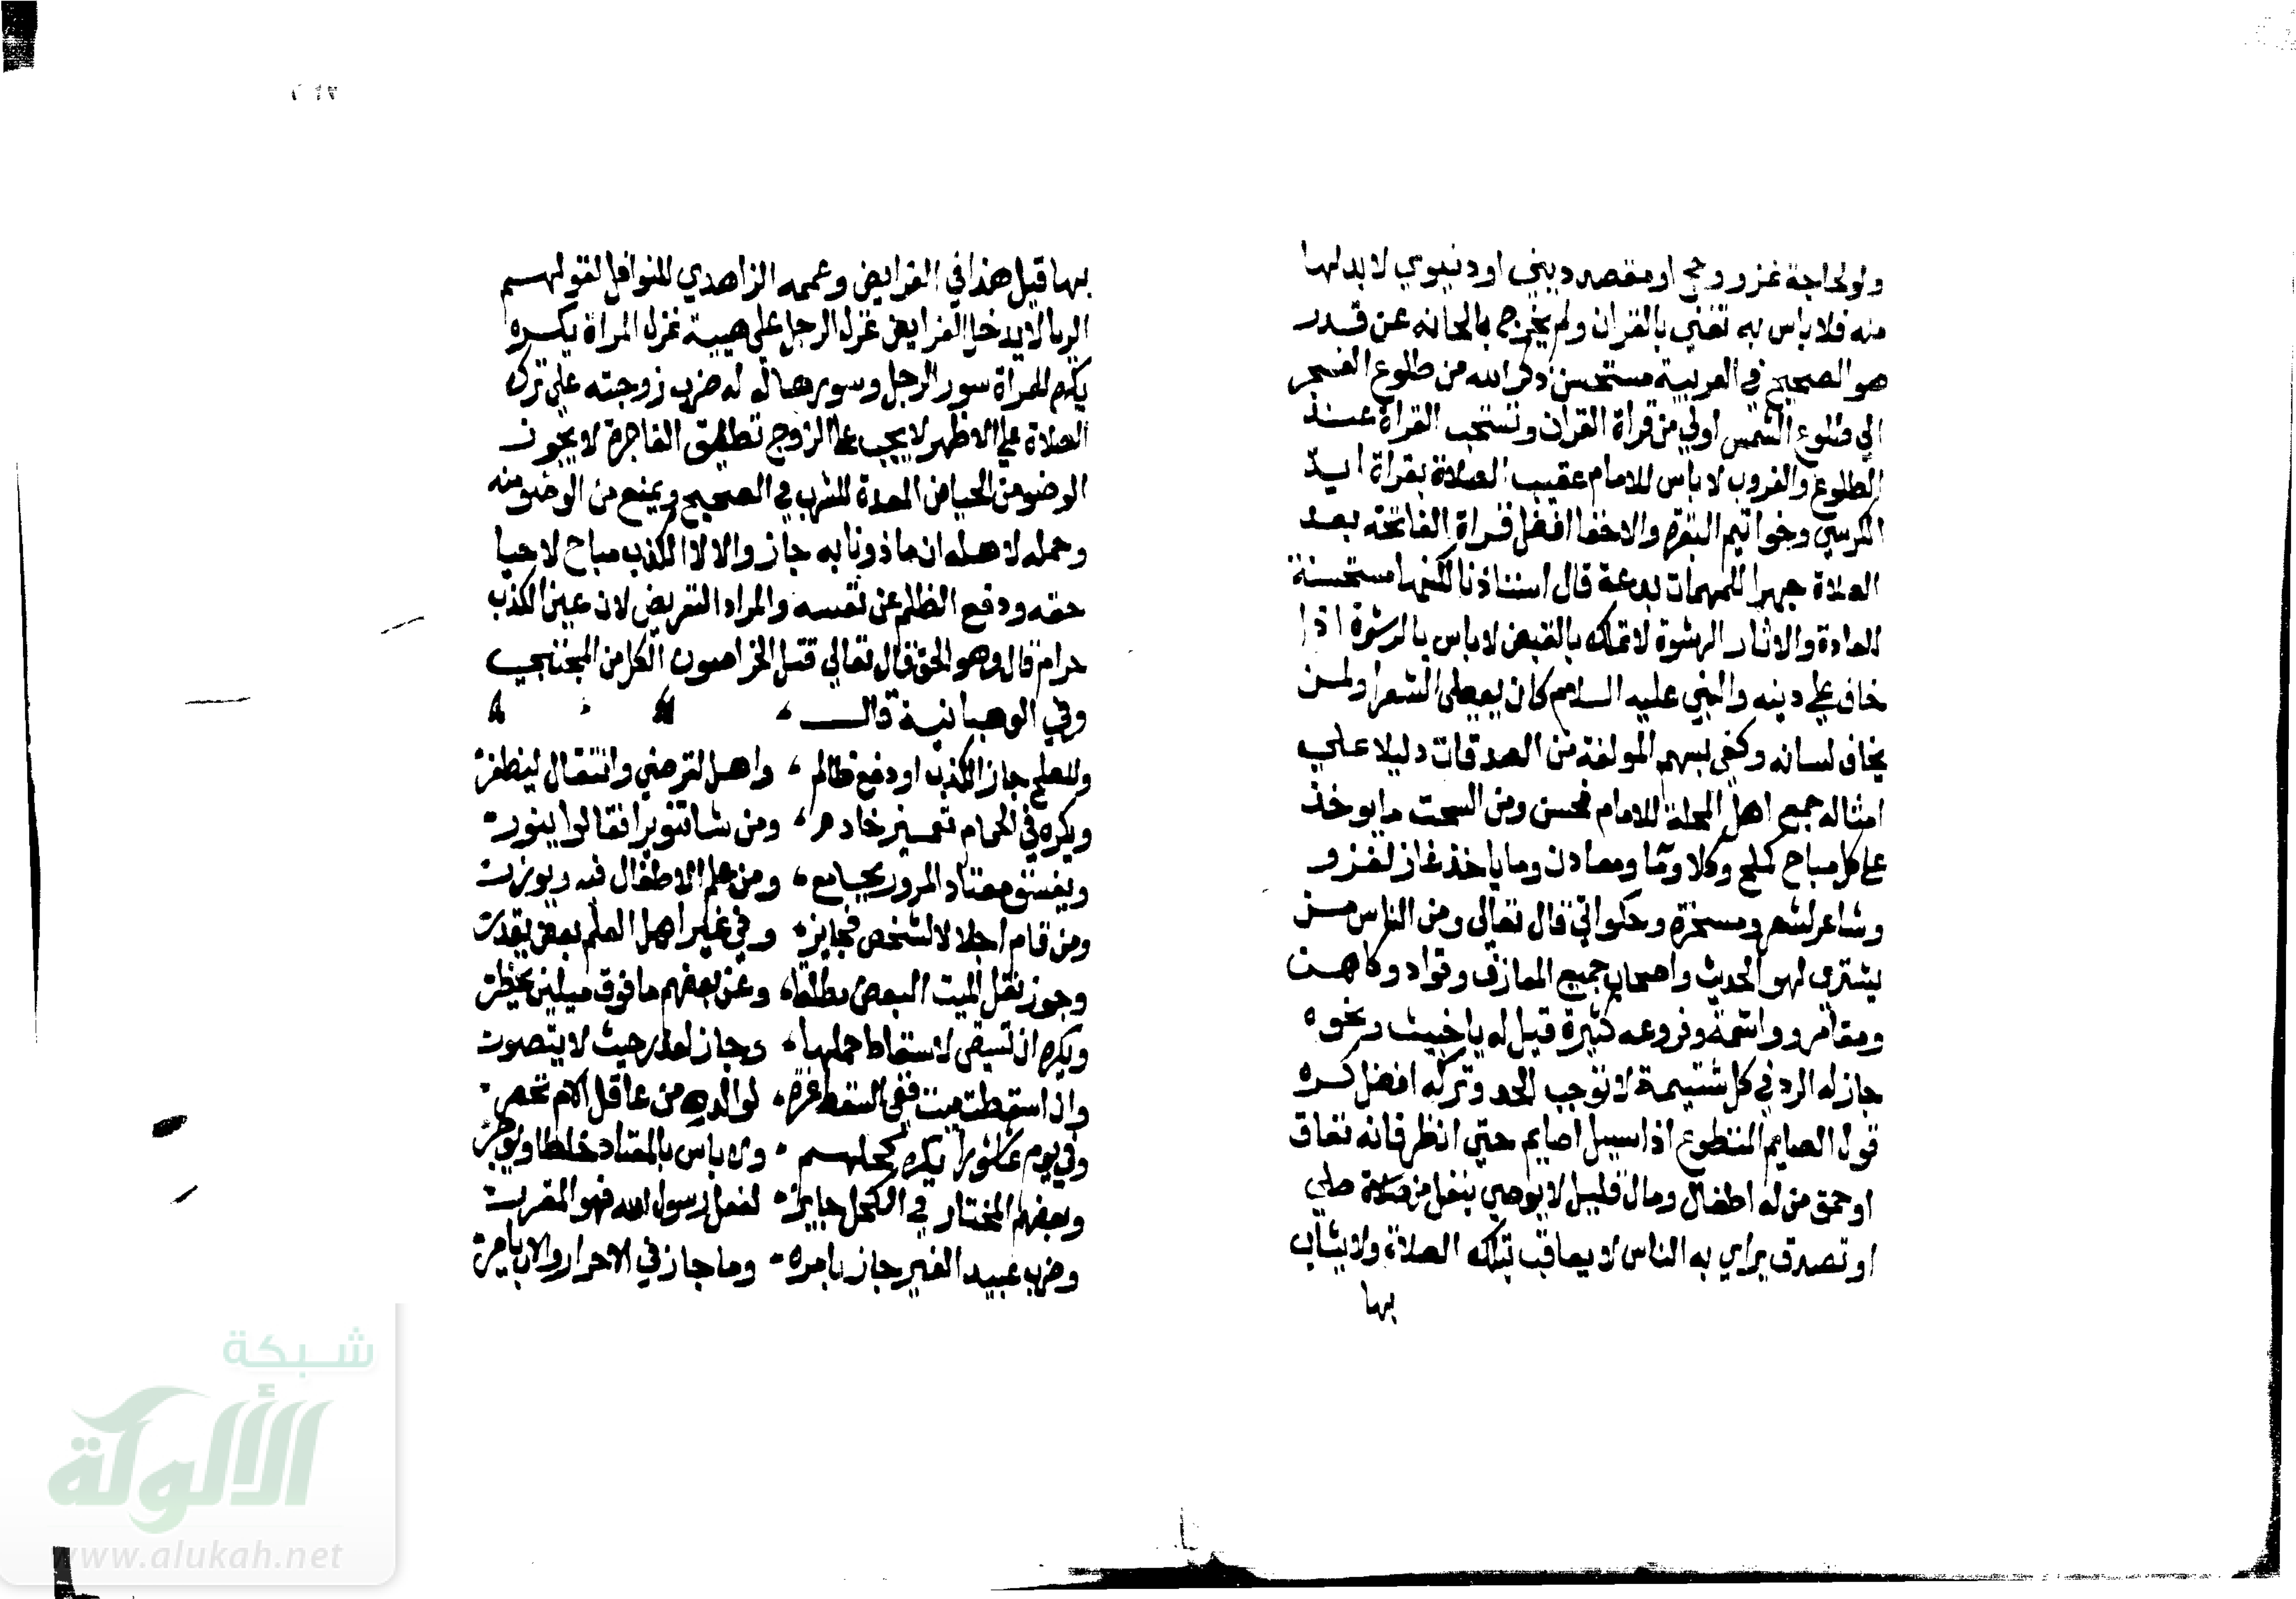 ولو لحاجة غزو وحج او مقصد ديني او دنيوي لا بد لها
منه فلا باس به تغني بالقران ولم يخرج بالحانه عن قدر
هو الصحيح في العربية مستحسن ذكر الله من طلوع الفجر
الي طلوع الشمس اولي من قراة القران وتستحب القراة عند
الطلوع والغروب لا باس للامام عقيب الصلاة بقراة اية
الكرسي وخواتيم البقره والاخفا افضل قراة الفاتحه بعد
الصلاة جهرا للمهمات بدعة قال استاذنا لكنها مستحسنة
للعادة والاثار الرشوة لا تملك بالقبض لا باس بالرشوة اذا
خاف علي دينه والنبي عليه السلام كان يعطي الشعرا ولمن
يخاف لسانه وكفي بسهم المولفة من الصدقات دليلا علي
امثاله جمع اهل المحلة للامام فحسن ومن السحت ما يوخذ
علي كل مباح كملح وكلا وما ومعادن وما ياخذ غاز لغزو
وشاعر لشعر ومسخرة وحكواتي قال تعالي ومن الناس من
يشتري لهو الحديث واصحاب جميع المعازف وقواد وكاهن
ومقامر وواشمة وفروعه كثيرة قيل له يا خبيث ونحوه
جاز له الرد في كل شتيمة لا توجب الحد وتركه افضل كره
قول الصايم المتطوع اذا سيل اصايم حتي انظر فانه نفاق
او حمق من له اطفال ومال قليل لا يوصي بنفل من صلاة صلي
او تصدق يراي به الناس لا يعاقب بتلك الصلاة ولا يثاب
بها
بها قيل هذا في الفرايض وعممه الزاهدي للنوافل لقولهم
الريا لا يدخل الفرايض غزل الرجل علي هيية غزل المراة يكره
يكره للمراة سور الرجل وسورها له له ضرب زوجته علي ترك
الصلاة علي الاظهر لا يجب علي الزوج تطليق الفاجرة لا يجوز
الوضو من الحياض المعدة للشرب في الصحيح ويمنع من الوضو منه
وحمله لاهله ان ماذونا به جاز والا لا الكذب مباح لاحيا
حقه ودفع الظلم عن نفسه والمراد التعريض لان عين الكذب
حرام قال وهو الحق قال تعالي قتل الخراصون الكل من المجتبي
وفي الوهبانية قال
وللصلح جاز الكذب او دفع ظالم ، واهل لترضي والقتال ليظفر
ويكره في الحمام تغميز خادم ، ومن شا تنويرا فقالوا ينور
ويفسق معتاد المرور بجامع ، ومن علم الاطفال فيه ويوزر
ومن قام اجلالا لشخص فجايز ، وفي غير اهل العلم بعض يقرر
وجوز نقل الميت البعض مطلقا ، وعن بعضهم ما فوق ميلين يحظر
ويكره ان تسقي لاسقاط حملها ، وجاز لعذر حيث لا يتصور
وان اسقطت ميتا ففي السقط غرة ، لوالده من عاقل الام تحضر
وفي يوم عاشورا يكره كحلهم ، ولا باس بالمعتاد خلطا ويوجر
وبعضهم المختار في الكحل جايز ، لفعل رسول الله فهو المقرر
وضرب عبيد الغير جاز بامره ، وما جاز في الاحرار والاب يامر
شبكة
الألوكة
www.alukah.net